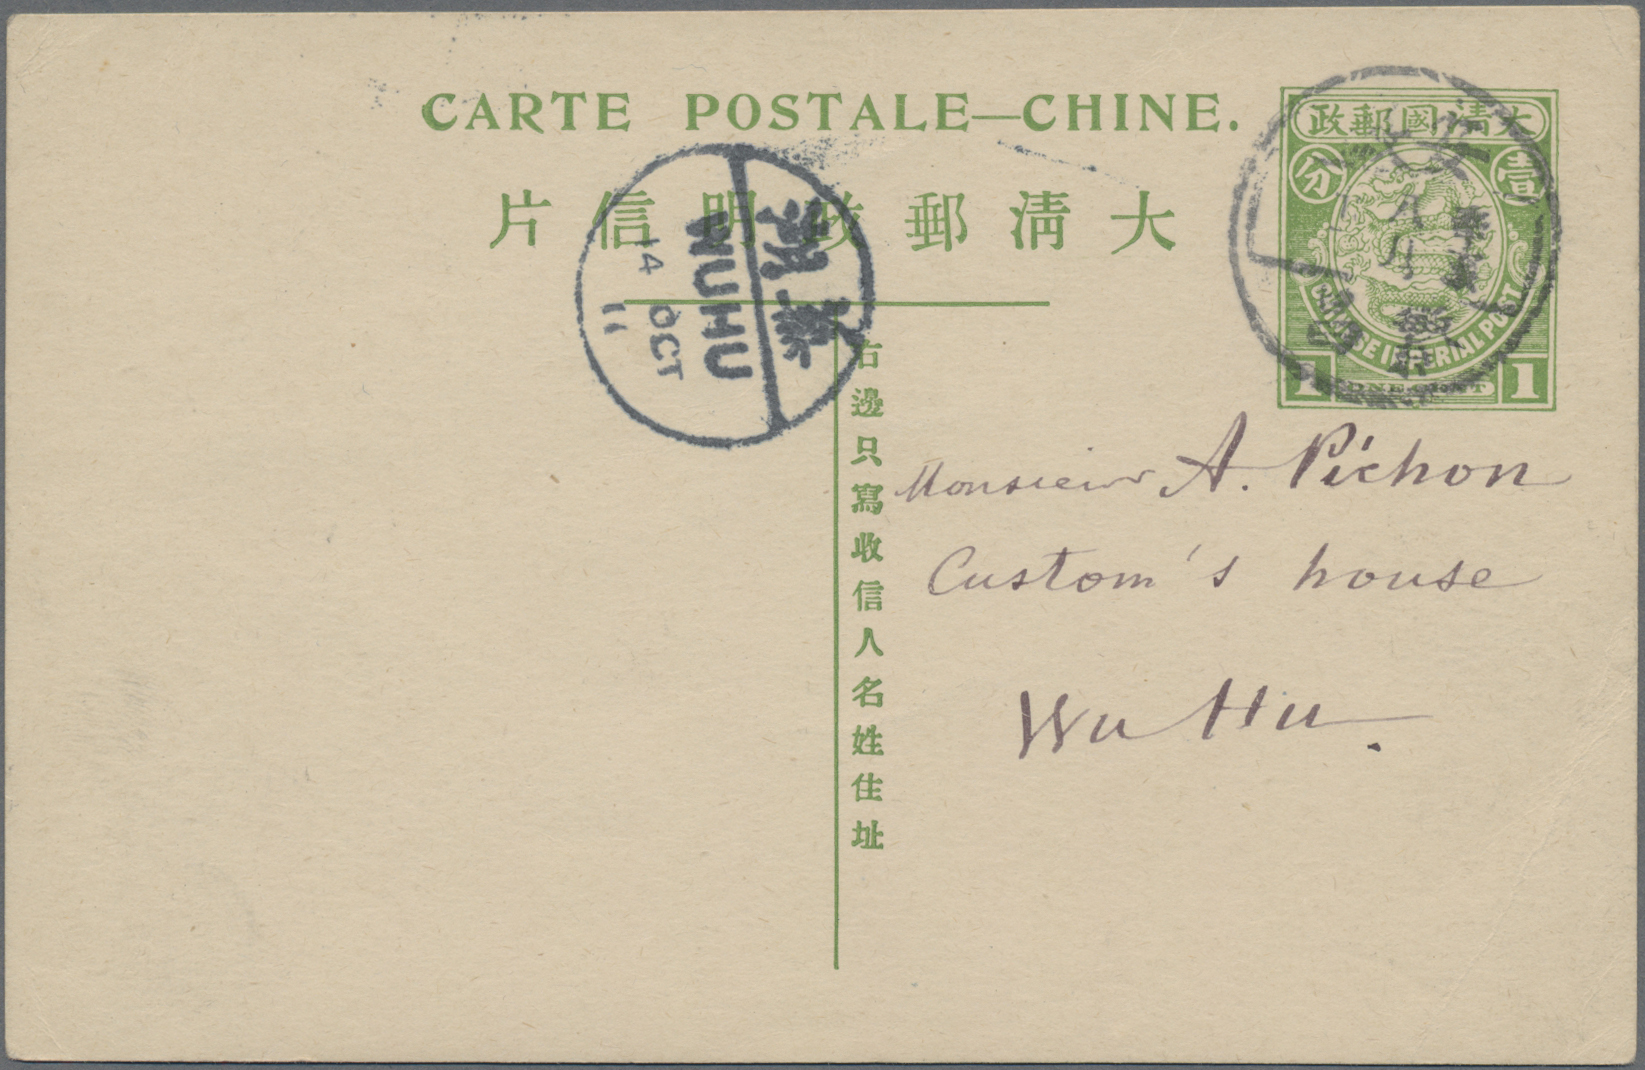 CARTE POSTALE—CHINE.
片信明政郵清大
政郵國清大
分 壹
CHINESE IMPERIAL POST
1 ONE CENT 1
蕪湖
WUHU
14 OCT
11
八月
右邊只寫收信人名姓住址
Monsieur A. Pichon
Custom's house
Wu Hu.